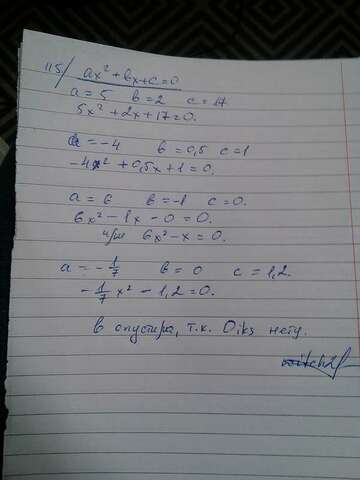 115/ ax² + bx + c = 0
a = 5 b = 2 c = 17
5x² + 2x + 17 = 0.
a = -4 b = 0,5 c = 1
-4x² + 0,5x + 1 = 0.
a = 6 b = -1 c = 0.
6x² - 1x - 0 = 0.
или 6x² - x = 0.
a = -1/7 b = 0 c = 1,2.
-1/7 x² - 1,2 = 0.
в опустила, т.к. 0iks нету.